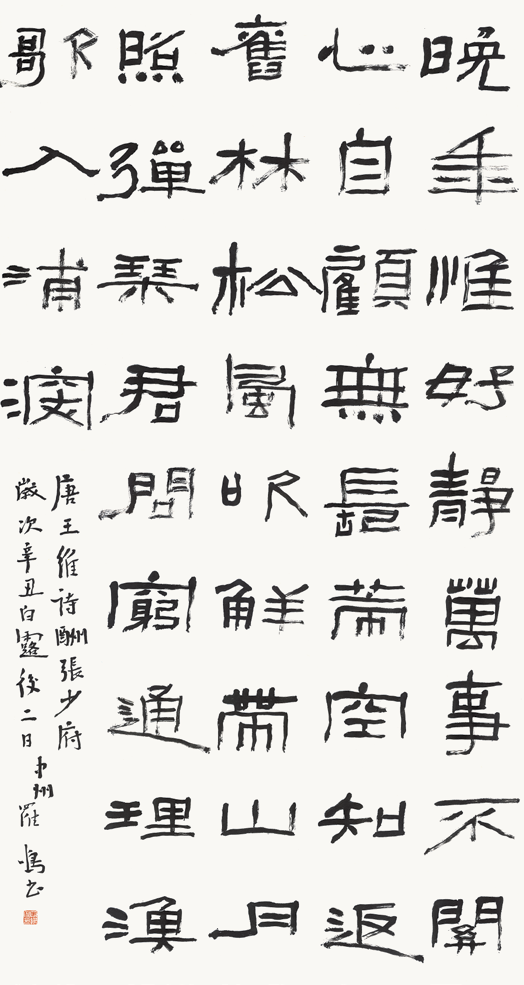 晚年惟好靜萬事不關
心自顧無長策空知返
舊林松風吹解帶山月
照彈琴君問窮通理漁
歌入浦深
唐王維詩酬張少府
歲次辛丑白露後二日中州羅鳴書